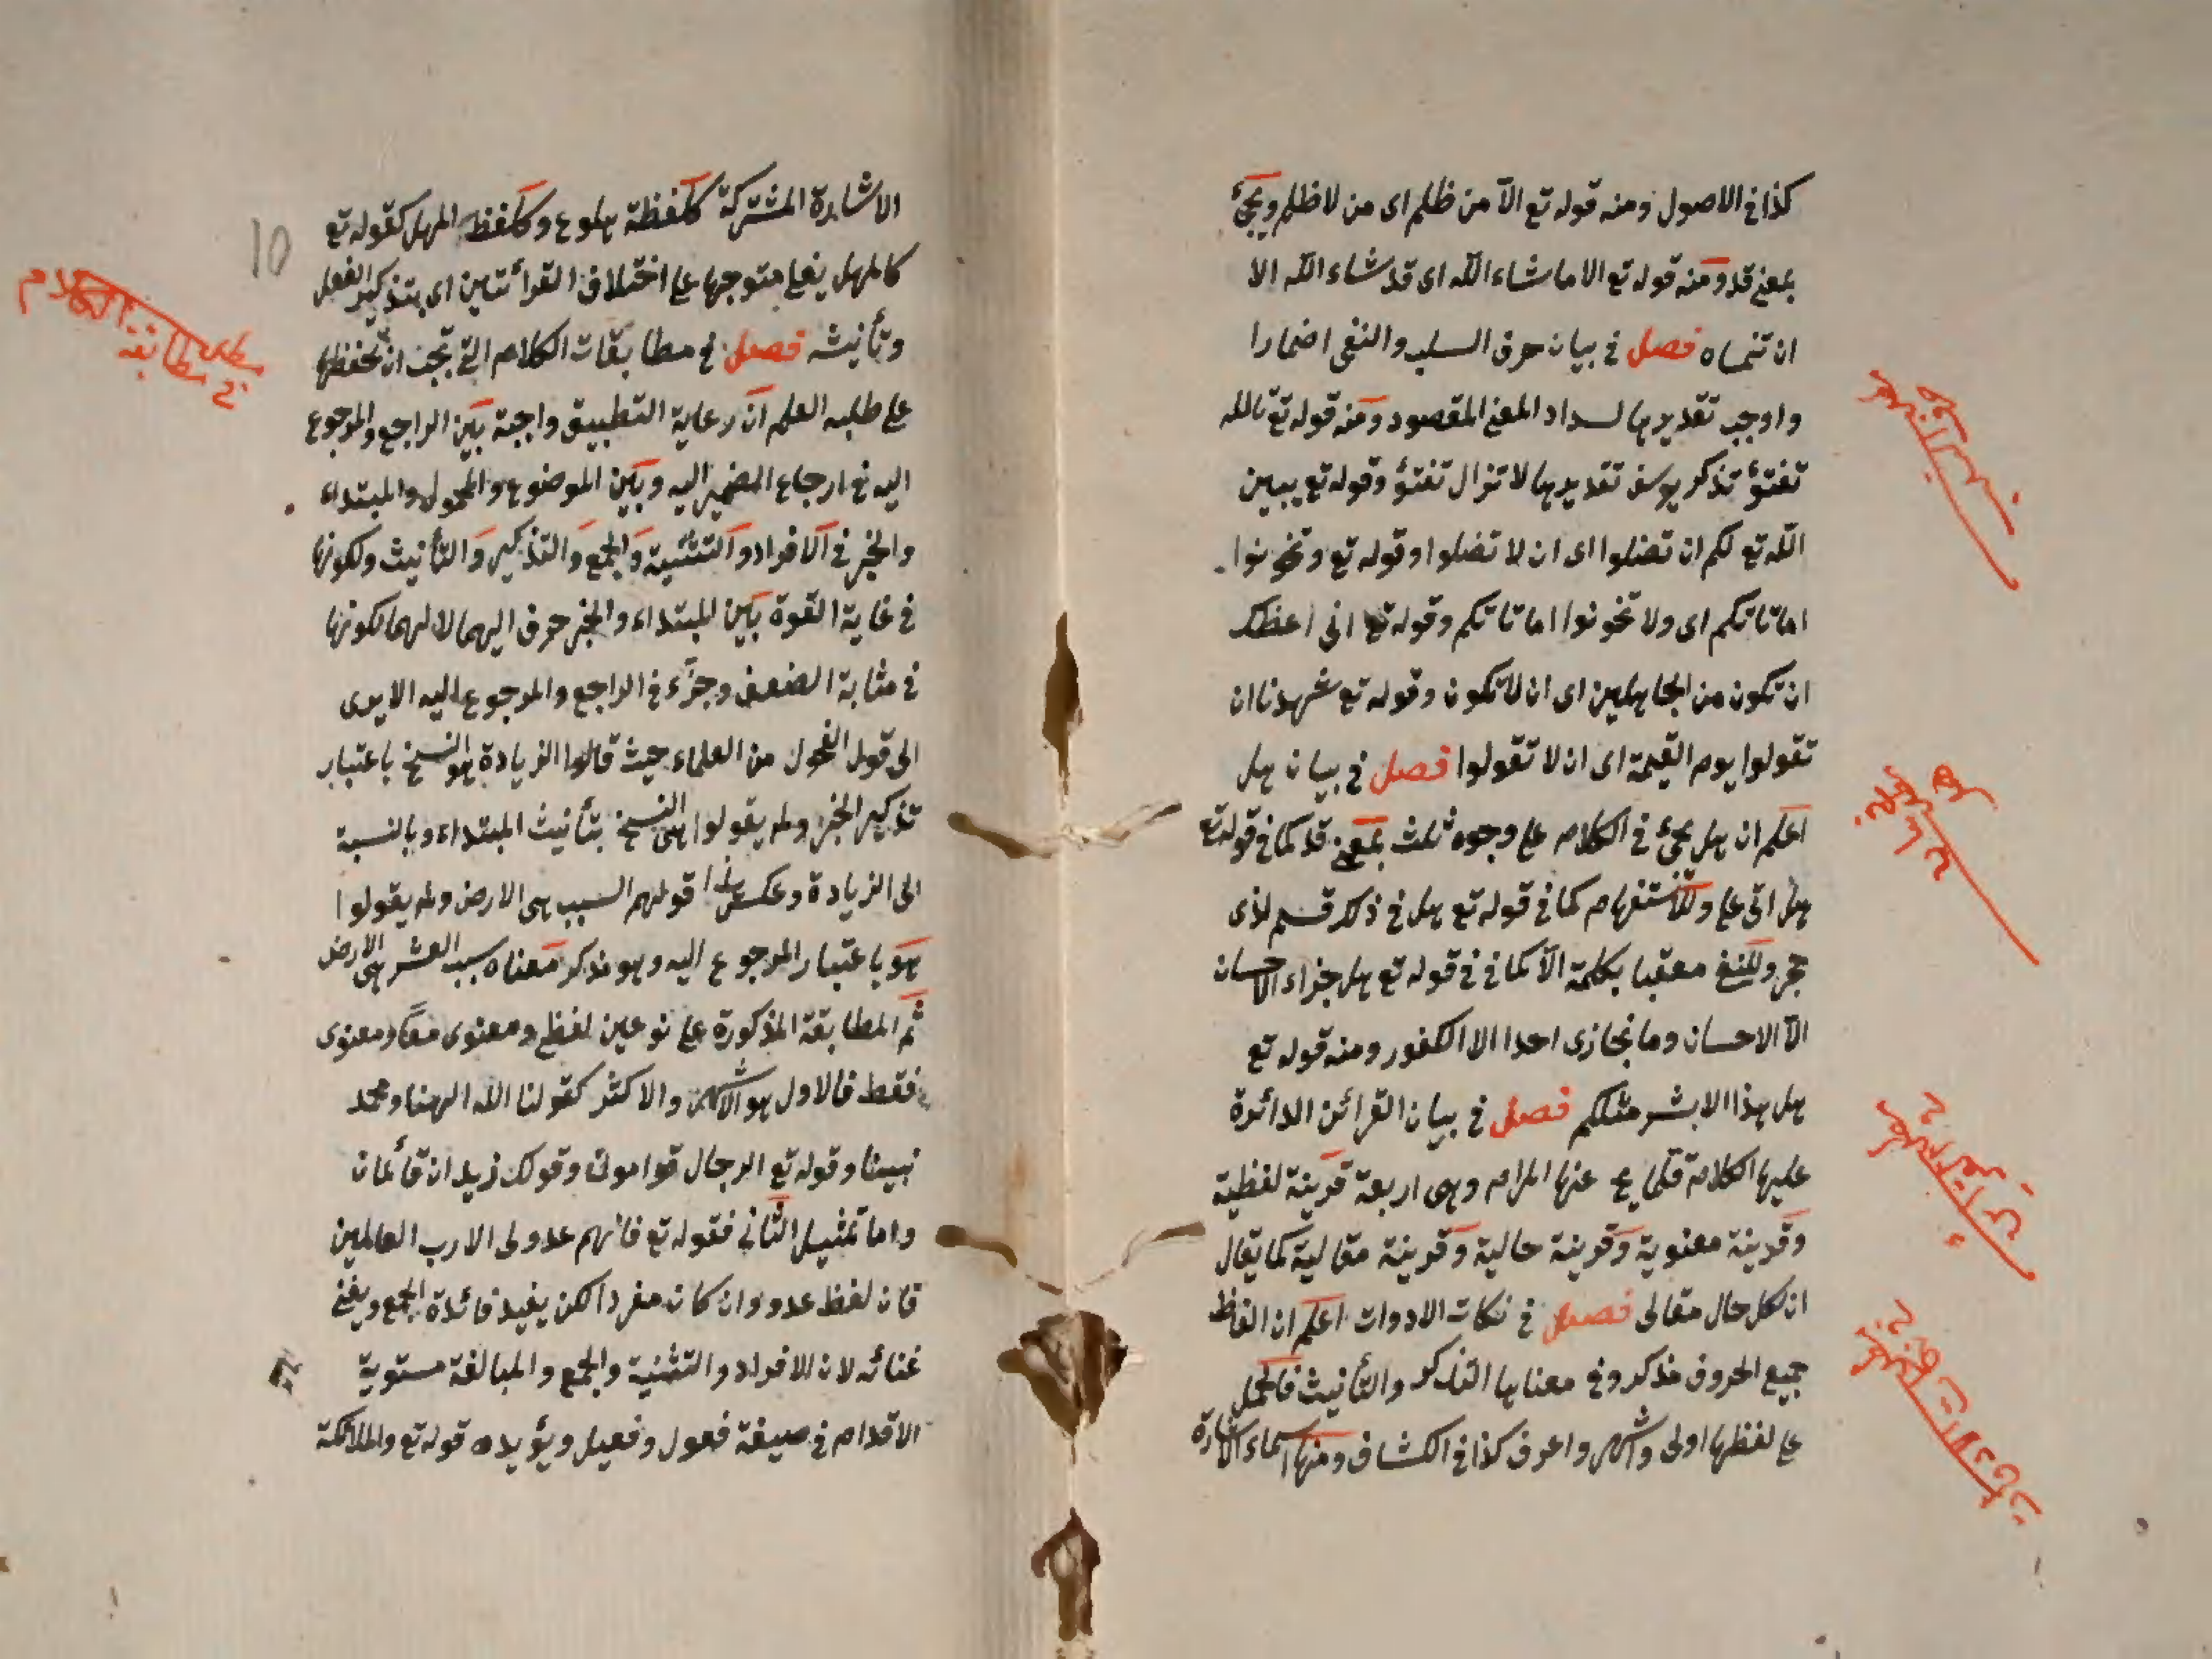 كذا في الاصول ومنه قوله تع الا من ظلم اى من لا ظلم ويجئ
بمعنى قد ومنه قوله تع الا ما شاء الله اى قد شاء الله الا
ان تنساه فصل في بيان حرف السلب والنفى اضمارا
واوجب تقديرها لسداد المعنى المقصود ومنه قوله تع تالله
تفتؤ تذكر يوسف تقديرها لا تزال تفتؤ وقوله تع يبين
الله تع لكم ان تضلوا اى ان لا تضلوا وقوله تع وتخونوا
اماناتكم اى ولا تخونوا اماناتكم وقوله تع انى اعظك
ان تكون من الجاهلين اى ان لا تكون وقوله تع شهدنا ان
تقولوا يوم القيمة اى ان لا تقولوا فصل في بيان هل
اعلم ان هل يجئ في الكلام على وجوه ثلث بمعنى قد كما في قوله تع
هل اتى على وللاستفهام كما في قوله تع هل في ذلك قسم لذى
حجر وللنفى معقبا بكلمة الا كما في قوله تع هل جزاء الاحسان
الا الاحسان وما نجازى احدا الا الكفور ومنه قوله تع
هل هذا الا بشر مثلكم فصل في بيان القرائن الدائرة
عليها الكلام عنها المرام وهى اربعة قرينة لفظية
وقرينة معنوية وقرينة حالية وقرينة مقالية كما يقال
ان لكل حال مقالى فصل في نكات الادوات اعلم ان الفاظ
جميع الحروف مذكر وفى معناها التذكير والتأنيث فالحمل
على لفظها اولى واشهر واعرف كذا في الكشاف ومنها اسماء الاشارة
الاشارة المشتركة كلفظة هلوع وكلفظ المهل كقوله تع
كالمهل يغلى متوجها على اختلاف القرائتين اى بتذكير الفعل
وتأنيثه فصل في مطابقات الكلام التى تجب ان تحفظها
على طلبه العلم ان رعاية التطبيق واجبة بين الراجع والمرجوع
اليه في ارجاع الضمير اليه وبين الموضوع والمحمول والمبتداء
والخبر في الافراد والتثنية والجمع والتذكير والتأنيث ولكونها
في غاية القوة بين المبتداء والخبر حرف اليهما لا لهما لكونها
في مثابة الضعف وجزء في الراجع والمرجوع اليه الا يرى
الى قول الفحول من العلماء حيث قالوا الزيادة هو النسخ باعتبار
تذكير الخبر ولم يقولوا هى النسخ بتأنيث المبتداء وبالنسبة
الى الزيادة وعكس هذا قولهم السبب هى الارض ولم يقولوا
هو باعتبار المرجوع اليه وهو مذكر معناه سبب العشر هى الارض
ثم المطابقة المذكورة على نوعين لفظى ومعنوى معا ومعنوى
فقط فالاول هو الاشهر والاكثر كقولنا الله الهنا ومحمد
نبينا وقوله تع الرجال قوامون وقولك زيدان قائمان
واما تمثيل الثانى فقوله تع فانهم عدو لى الا رب العالمين
فان لفظ عدو وان كان مفردا لكن يفيد فائدة الجمع ويغنى
غنائه لان الافراد والتثنية والجمع والمبالغة مستوية
الاقدام في صيغة فعول وفعيل ويؤيده قوله تع والملائكة
10
مطلب في مطابقة الكلام